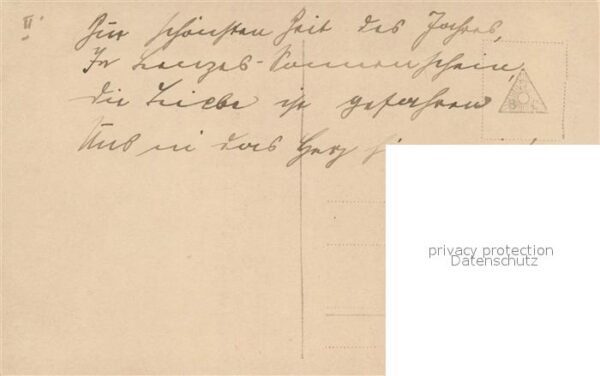 II
Zur schönsten Zeit des Jahres,
In Lenzes-Sonnenschein,
die Liebe ist gefahren
Uns in das Herz
privacy protection
Datenschutz